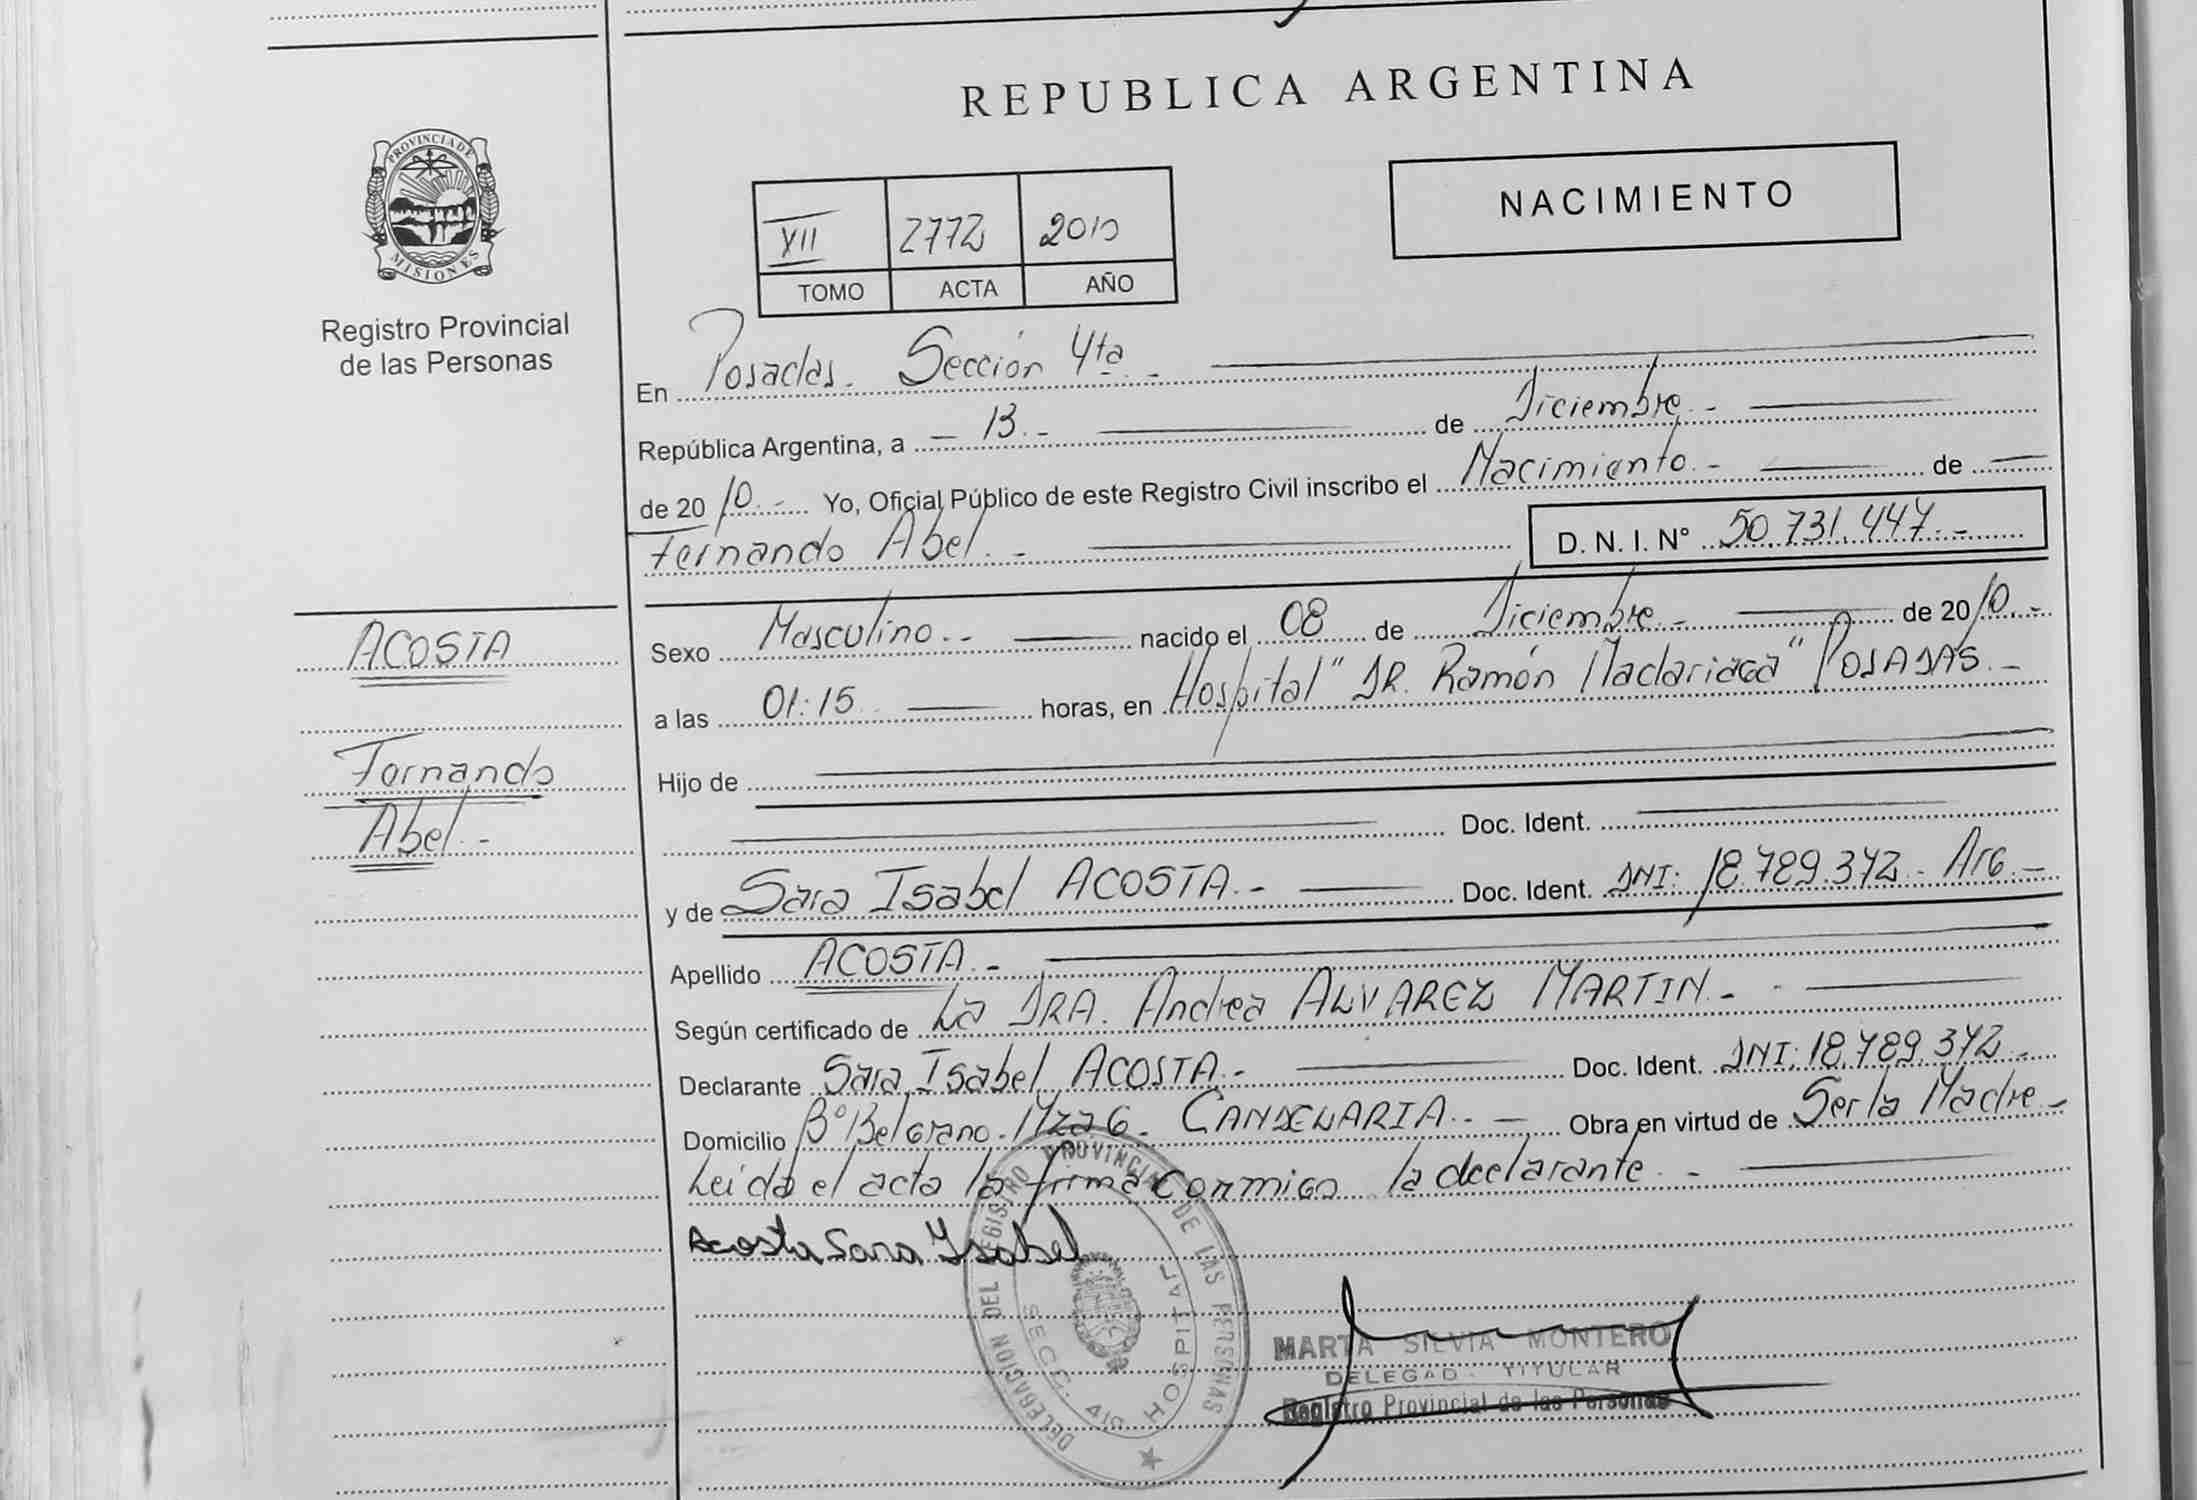 REPUBLICA ARGENTINA
PROVINCIA DE
MISIONES
Registro Provincial
de las Personas
NACIMIENTO
XII 2772 2010
TOMO ACTA AÑO
En Posadas. Sección 4ta.-
República Argentina, a - 13.- de Diciembre.-
de 20 10.- Yo, Oficial Público de este Registro Civil inscribo el Nacimiento.- de
Fernando Abel.- D. N. I. Nº 50.731.447.-
ACOSTA
Fernando
Abel.-
Sexo Masculino.- nacido el 08 de Diciembre.- de 20 10.-
a las 01:15 horas, en Hospital "DR. Ramón Madariaga" POSADAS.-
Hijo de
Doc. Ident.
y de Sara Isabel ACOSTA.- Doc. Ident. DNI: 18.789.372.- Arg.-
Apellido ACOSTA.-
Según certificado de La DRA. Andrea ALVAREZ MARTIN.-
Declarante Sara Isabel ACOSTA.- Doc. Ident. DNI: 18.789.372.-
Domicilio Bº Belgrano. Mza 6. CANDELARIA.- Obra en virtud de Ser la Madre.-
Leida el acta la firma conmigo la declarante.-
Acosta Sara Ysabel
DELEGACION DEL REGISTRO PROVINCIAL DE LAS PERSONAS
SECC. 4ta HOSPITAL
MARTA SILVIA MONTERO
DELEGAD. TITULAR
Registro Provincial de las Personas